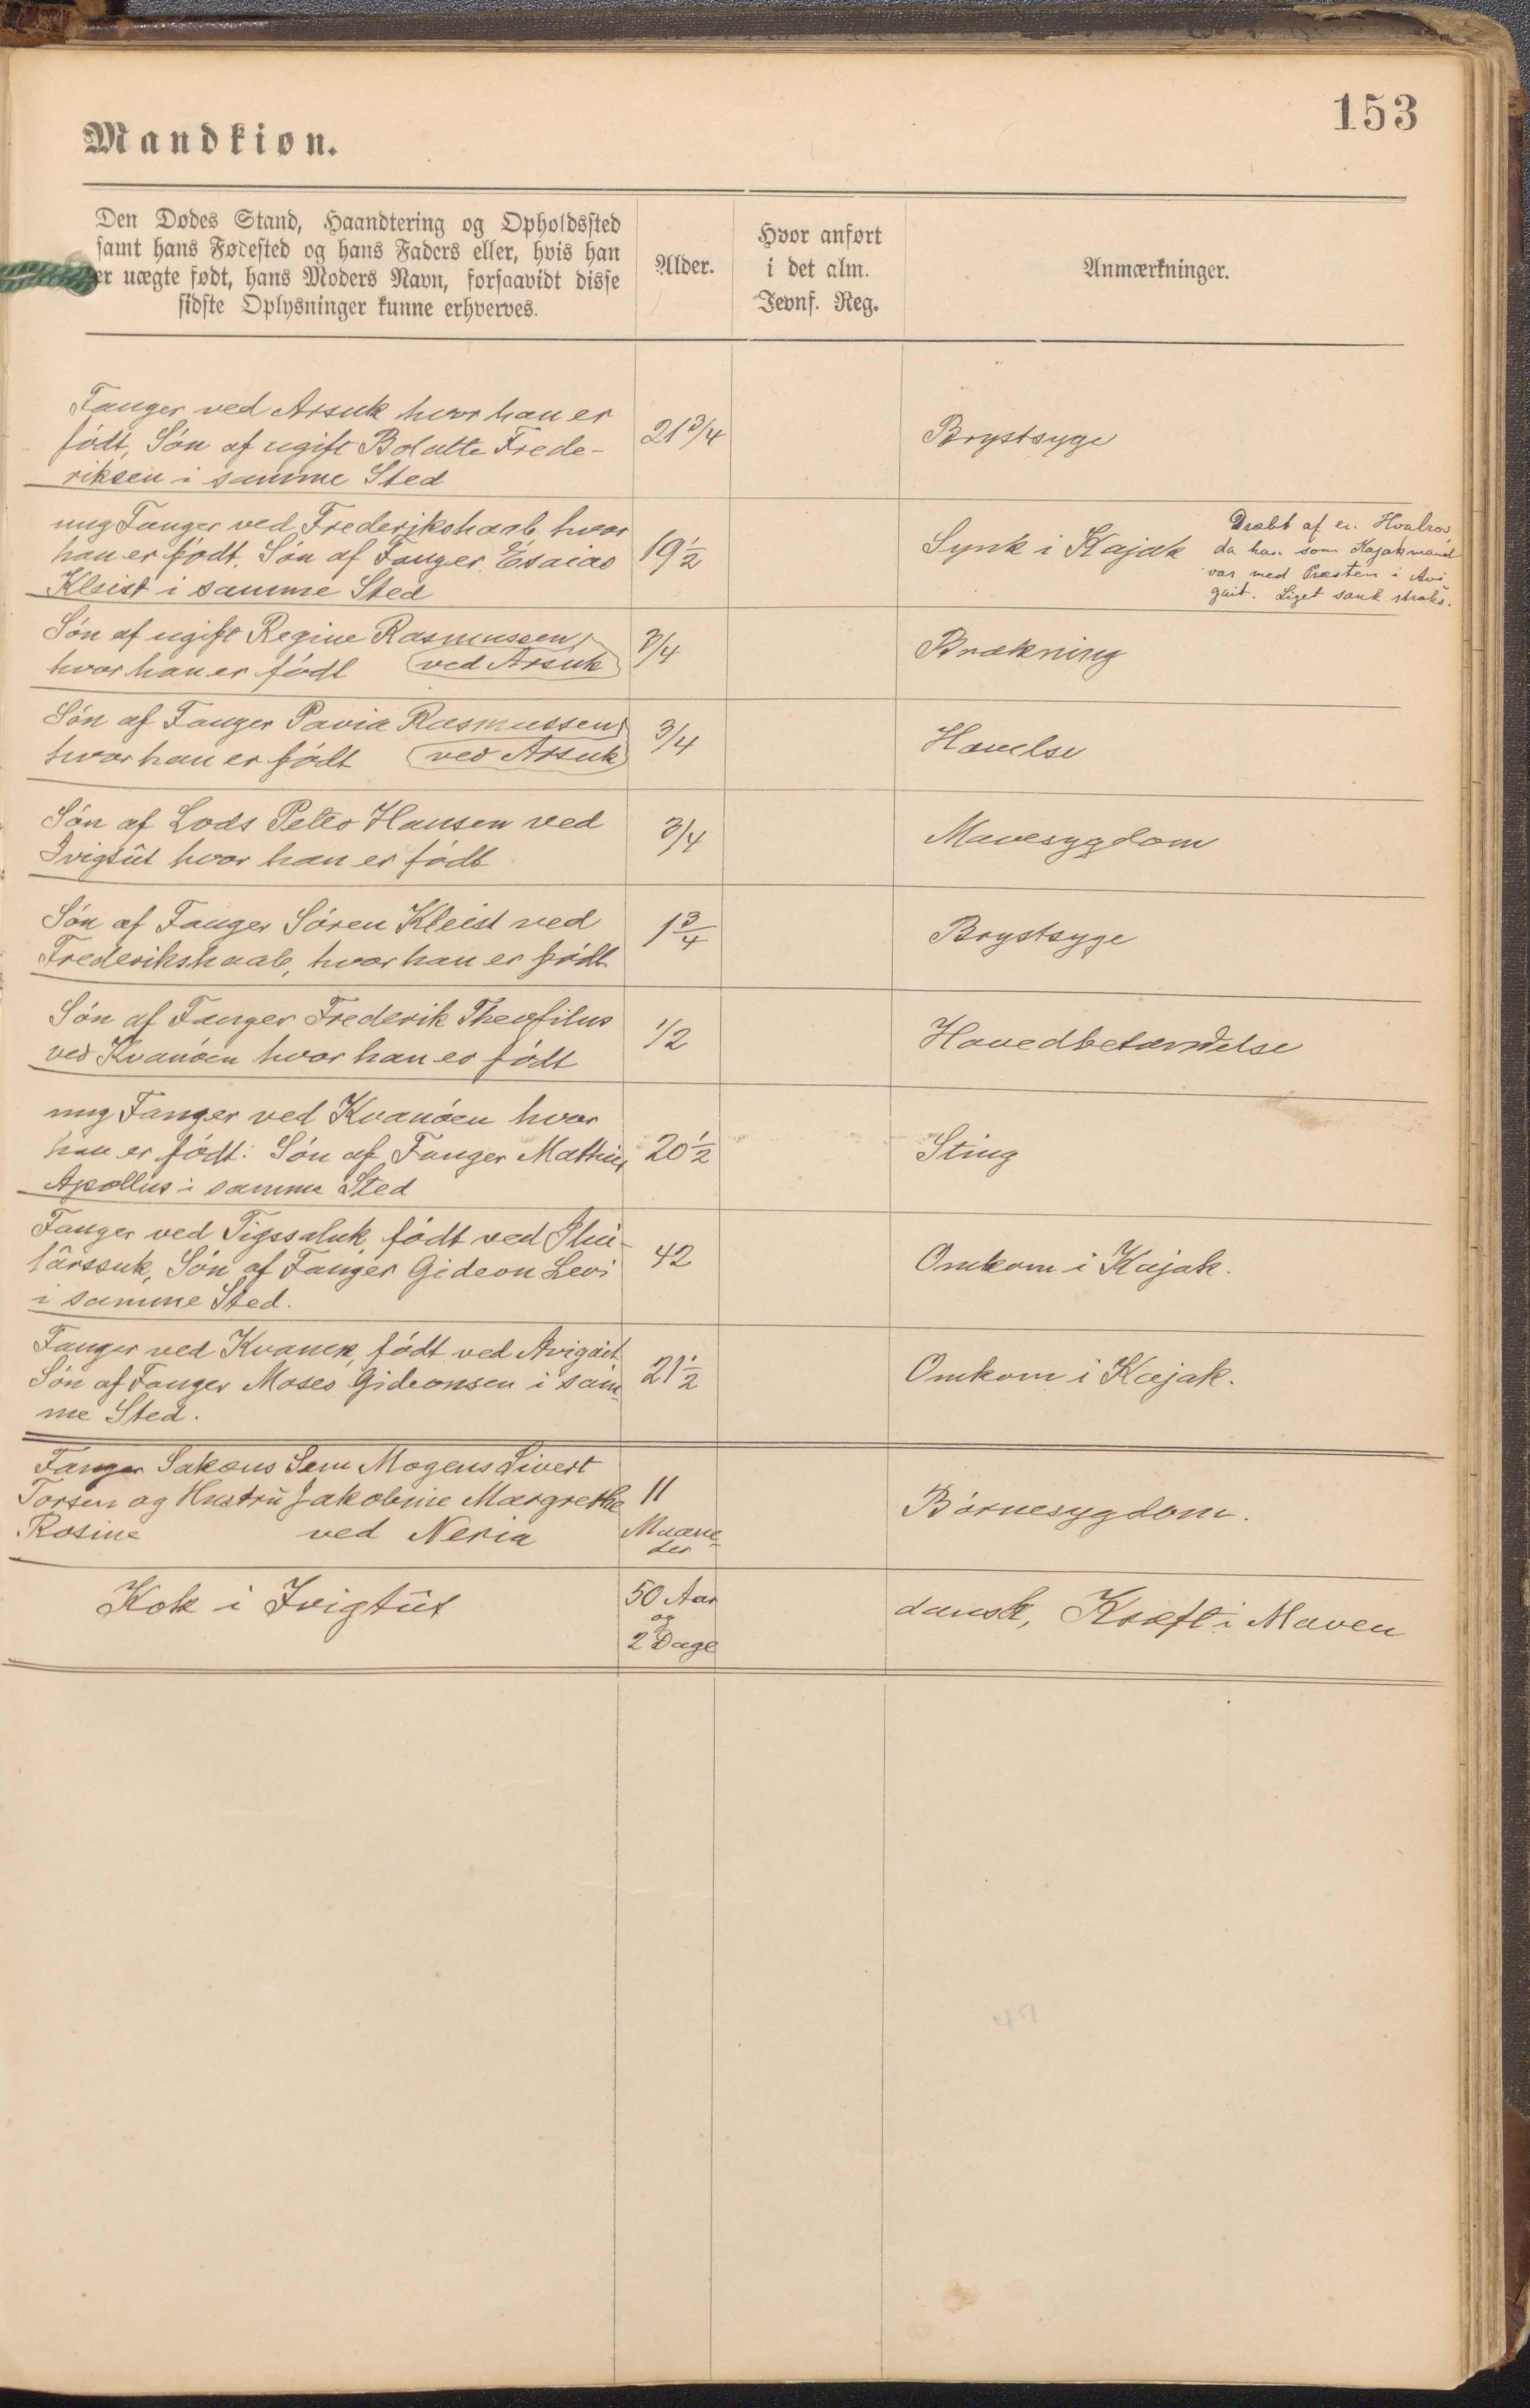 153
Mandkiøn.
Den Dødes Stand, Haandtering og Opholdssted
samt hans Fødested og hans Faders eller, hvis han
er uægte født, hans Moders Navn, forsaavidt disse
sidste Oplysninger kunne erhverves.
Alder.
Hvor anført
i det alm.
Jevnf. Reg.
Anmærkninger.
Fanger ved Arsuk hvor han er
født, Søn af ugift Bolatte Frede-
riksen i samme Sted
21 3/4
Brystsyge
ung Fanger ved Frederikshaab, hvor
han er født. Søn af Fanger Esaias
Kleist i samme Sted
19 1/2
Synk i Kajak
Dræbt af en Hvalros
da han som Kajakmand
var med Præsten i Avi
gait. Liget sank straks.
Søn af ugift Regine Rasmussen,
hvor han er født ved Arsuk
3/4
Brækning
Søn af Fanger Pavia Rasmussen
hvor han er født ved Arsuk
3/4
Hævelse
Søn af Lods Peter Hansen ved
Ivigtût hvor han er født
3/4
Mavesygdom
Søn af Fanger Søren Kleist ved
Frederikshaab, hvor han er født
1 3/4
Brystsyge
Søn af Fanger Frederik Theofilus
ved Kvanøen hvor han er født
1/2
Hovedbetændelse
ung Fanger ved Kvanøen hvor
han er født. Søn af Fanger Mathias
Apollus i samme Sted
20 1/2
Sting
Fanger ved Tigssaluk født ved Ilui-
lârssuk, Søn af Fanger Gideon Levi
i samme Sted.
42
Omkom i Kajak.
Fanger ved Kvanek, født ved Avigait
Søn af Fanger Moses Gideonsen i sam
me Sted.
21 1/2
Omkom i Kajak.
Fanger Sakæus Sem Mogens Sivert
Torsen og Hustru Jakobine Margrethe
Rosine ved Neria
11
Maane-
der
Børnesygdom.
Kok i Ivigtût
50 Aar
og
2 Dage
dansk, Kræft i Maven